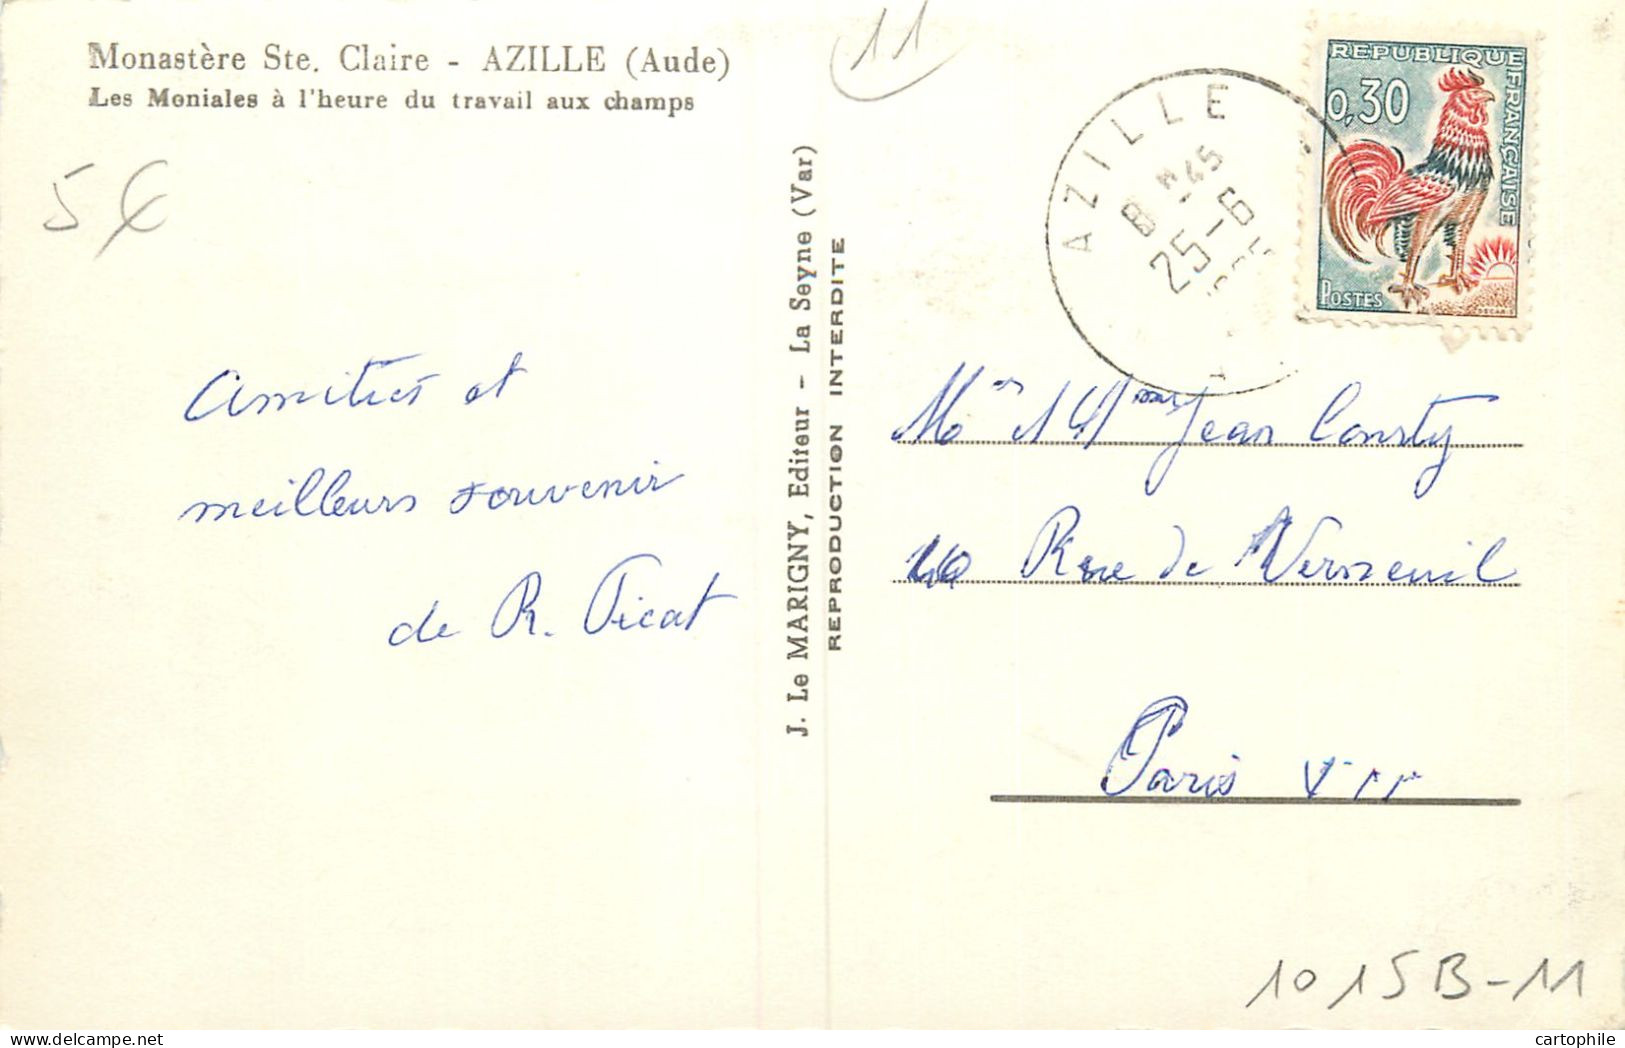 Monastère Ste. Claire - AZILLE (Aude)
Les Moniales à l'heure du travail aux champs
11
5€
Amitiés et
meilleurs souvenir
de R. Picat
J. Le MARIGNY, Editeur - La Seyne (Var)
REPRODUCTION INTERDITE
AZILLE
8 H 45
25-6
REPUBLIQUE FRANÇAISE
0,30
POSTES
DECARIS
Jean Consty
Rue de Verneuil
Paris VII
1015B-11
cartophile